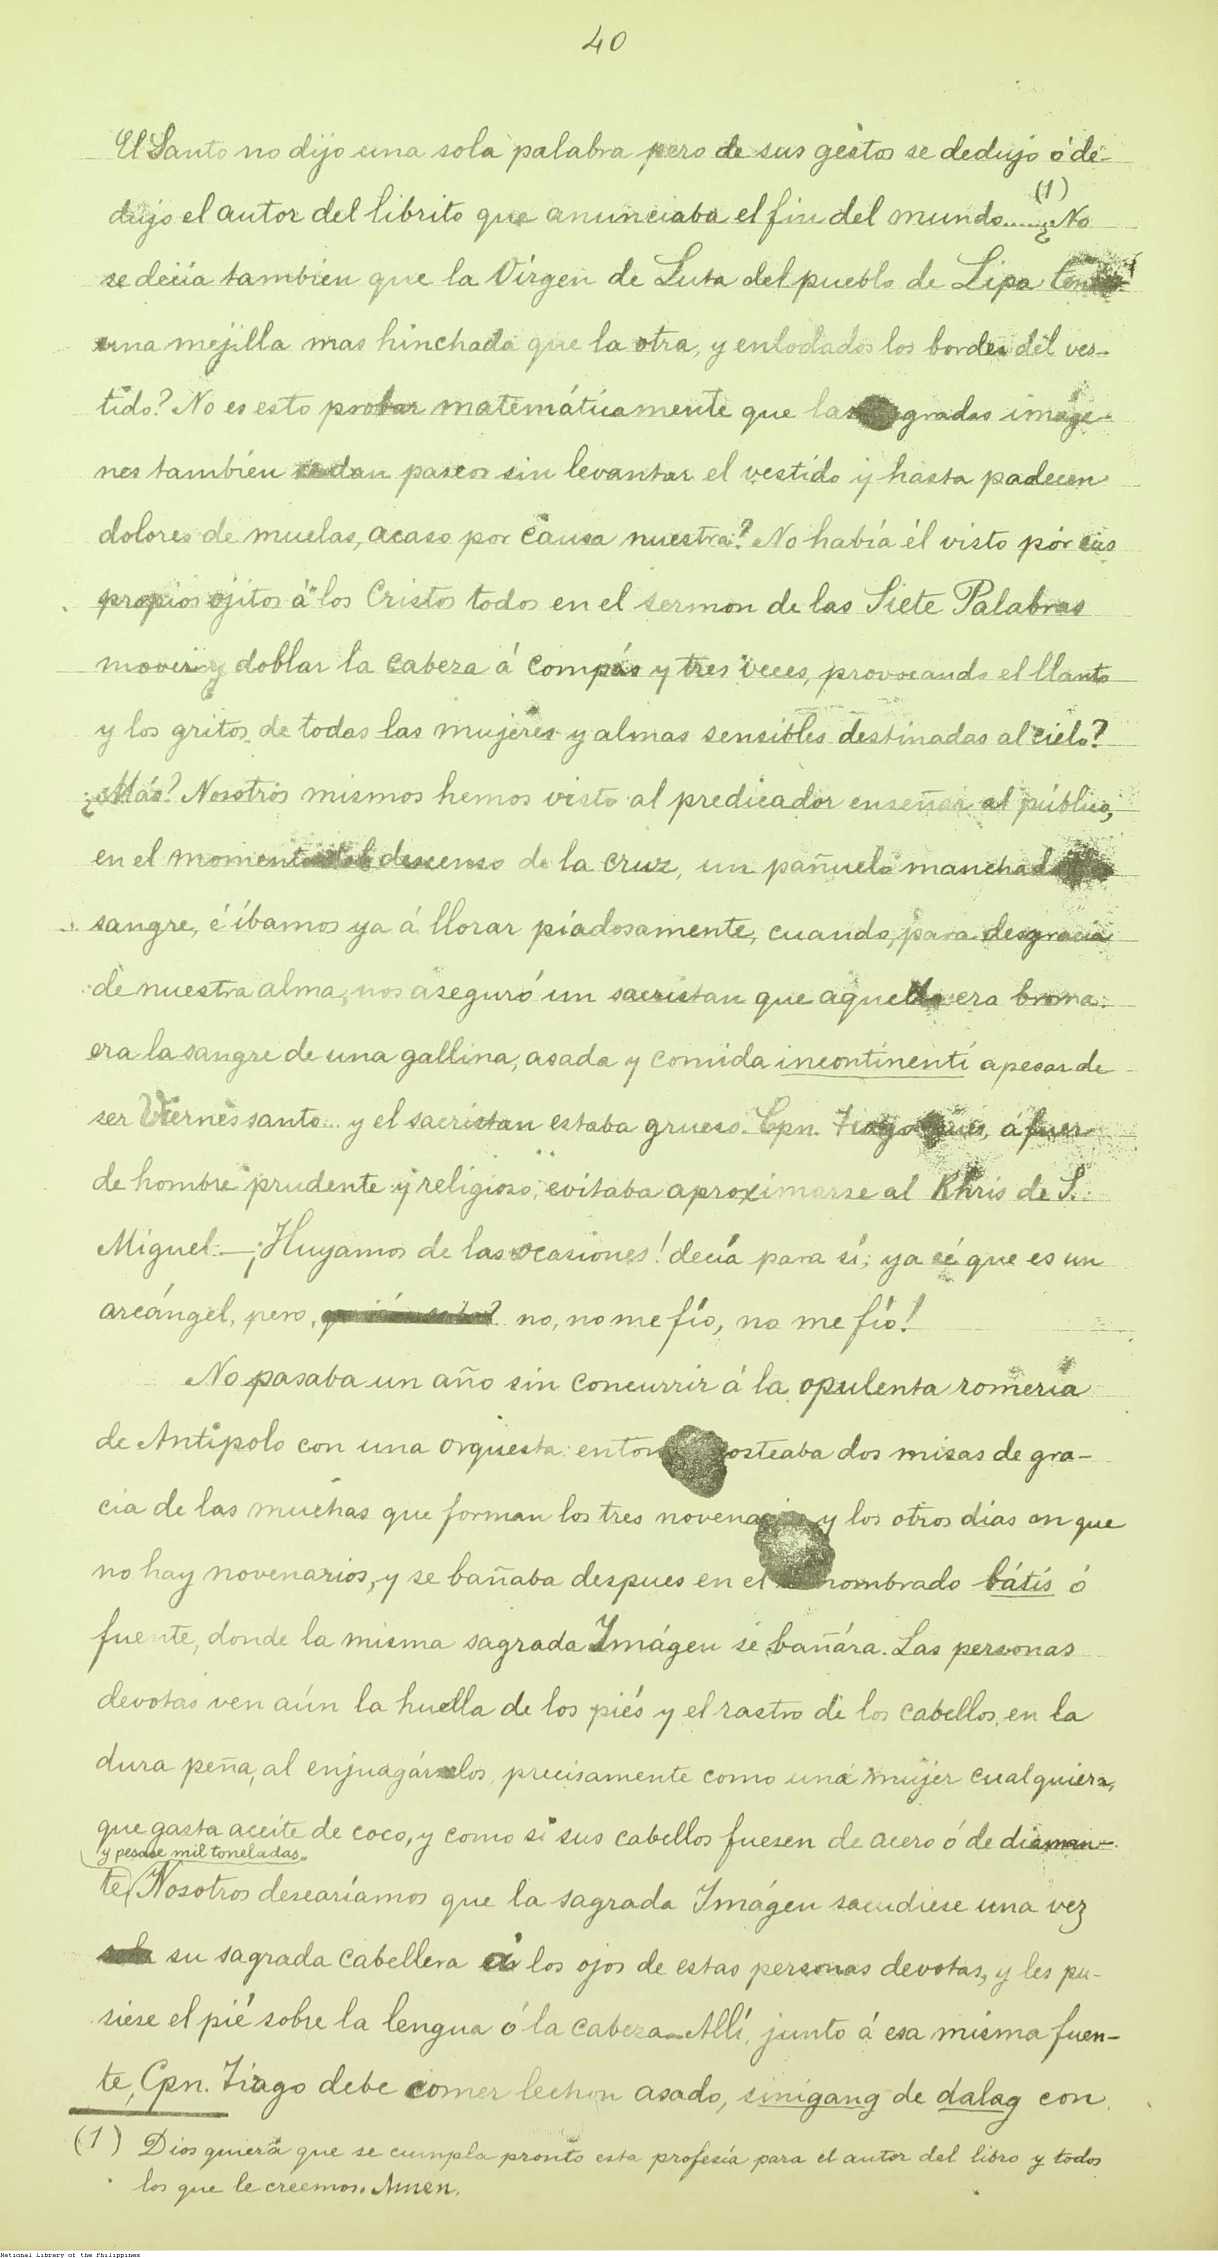 40
El Santo no dijo una sola palabra pero de sus gestos se dedujo ó de-
dujo el autor del librito que anunciaba el fin del mundo......(1) ¿No
se decía también que la Vírgen de Luta del pueblo de Lipa
una mejilla mas hinchada que la otra, y enlodados los bordes del ves-
tido? No es esto probar matemáticamente que las gradas imáge-
nes también se dan paseos sin levantar el vestido y hasta padecen
dolores de muelas, acaso por causa nuestra? No había él visto por sus
propios ojitos á los Cristos todos en el sermon de las Siete Palabras
mover y doblar la cabeza á compás y tres veces, provocando el llanto
y los gritos de todas las mujeres y almas sensibles destinadas al cielo?
¿Más? Nosotros mismos hemos visto al predicador enseñar al público,
en el momento del descenso de la cruz, un pañuelo manchado
sangre, é íbamos ya á llorar piadosamente, cuando, para desgracia
de nuestra alma, nos aseguró un sacristan que aquello era broma:
era la sangre de una gallina, asada y comida incontinenti apesar de
ser Viernes santo... y el sacristan estaba grueso. Cpn. Tiago pues, á fuer
de hombre prudente y religioso, evitaba aproximarse al Khris de S.
Miguel.—¡Huyamos de las ocasiones! decía para sí; ya sé que es un
arcángel, pero, no, no me fío, no me fío!
No pasaba un año sin concurrir á la opulenta romería
de Antipolo con una orquesta: costeaba dos misas de gra-
cia de las muchas que forman los tres novenarios y los otros días en que
no hay novenarios, y se bañaba despues en el nombrado bátis ó
fuente, donde la misma sagrada Imágen se bañára. Las personas
devotas ven aún la huella de los piés y el rastro de los cabellos en la
dura peña, al enjuagárselos, precisamente como una mujer cualquiera,
que gasta aceite de coco, y como si sus cabellos fuesen de acero ó de diaman-
y pesase mil toneladas.
te. Nosotros desearíamos que la sagrada Imágen sacudiese una vez
su sagrada cabellera á los ojos de estas personas devotas, y les pu-
siese el pié sobre la lengua ó la cabeza.—Allí, junto á esa misma fuen-
te, Cpn. Tiago debe comer lechon asado, sinigang de dalag con
(1) Dios quiera que se cumpla pronto esta profesía para el autor del libro y todos
los que le creemos. Amen.
National Library of the Philippines